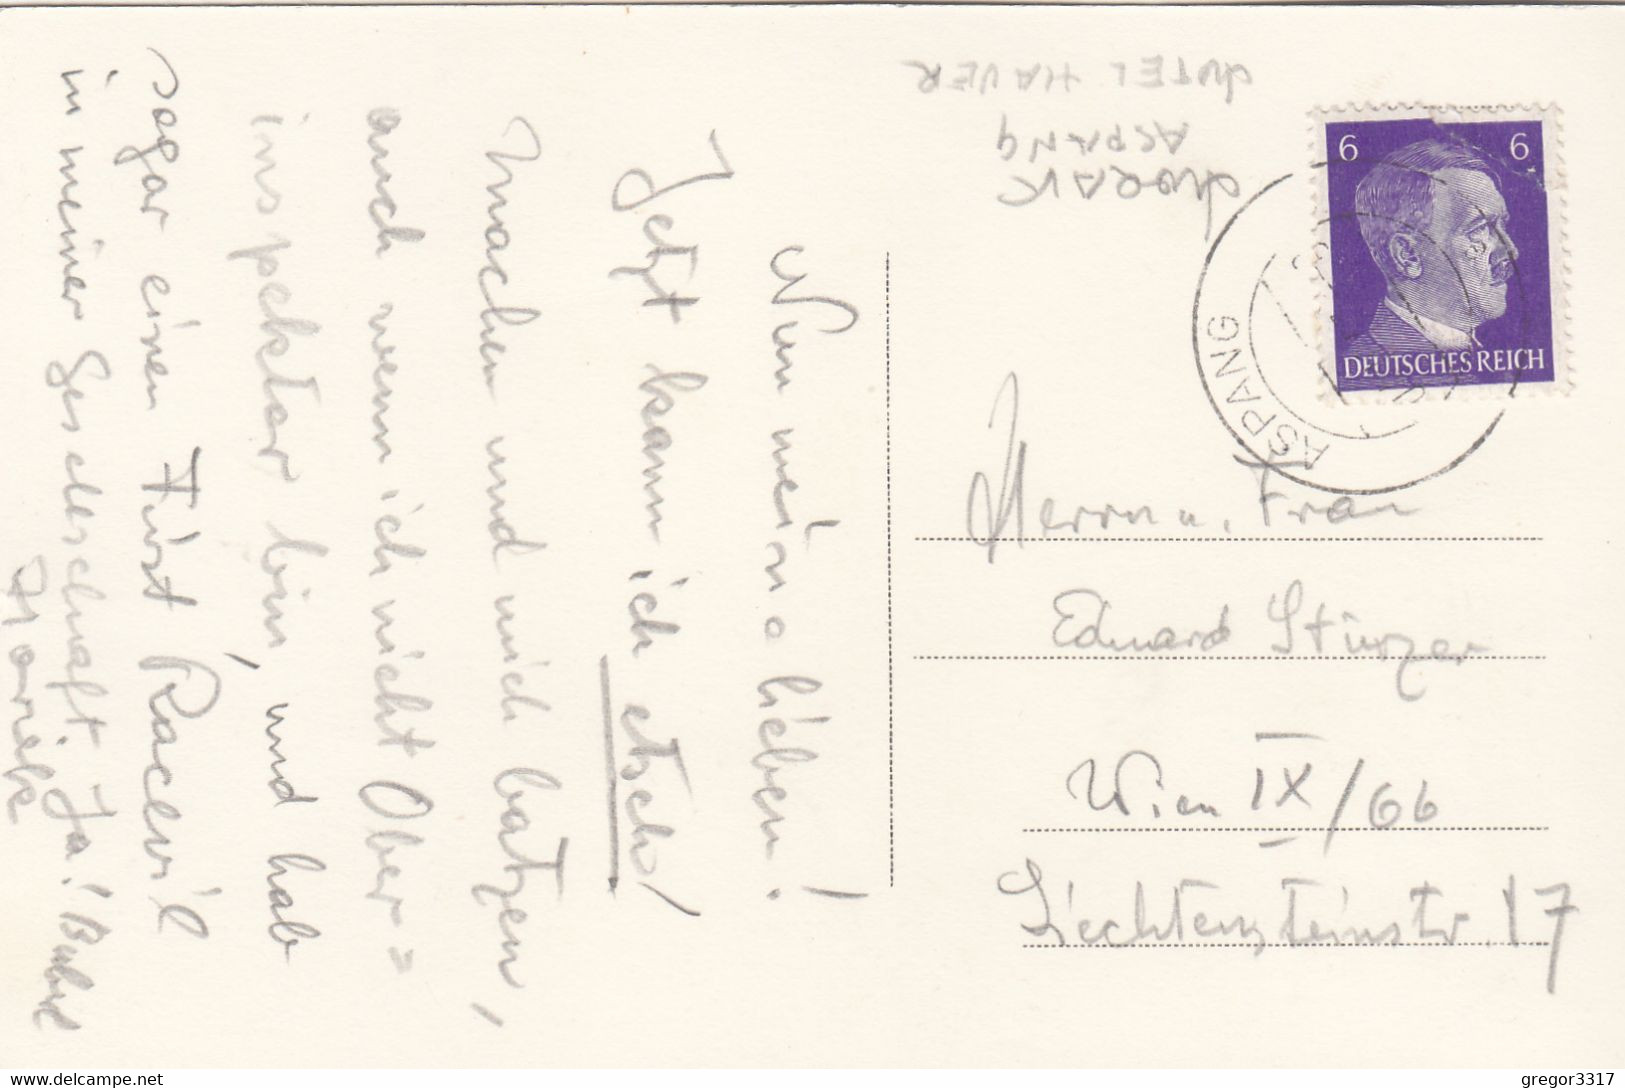 Nun meine lieben!
Jetzt kann ich etsch!
machen und mich batzen,
auch wenn ich nicht Ober=
inspektor bin, und hab
sogar einen Fürst
in meiner Gesellschaft. Ja!
HOTEL HAUER
ASPANG
6 6
DEUTSCHES REICH
ASPANG
Herrn u. Frau
Eduard Stürzer
Wien IX/66
Liechtensteinstr. 17
delcampe.net
gregor3317